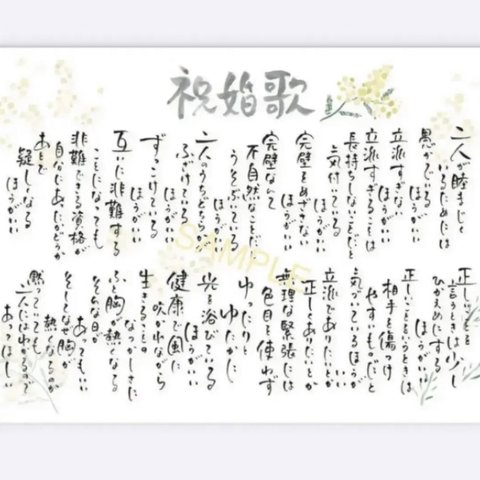 祝婚歌
二人が睦まじく
いるためには
愚かでいる
ほうがいい
立派すぎない
ほうがいい
立派すぎることは
長持ちしないことだと
気付いている
ほうがいい
完璧をめざさない
ほうがいい
完璧なんて
不自然なことだと
うそぶいている
ほうがいい
二人のうちどちらかが
ふざけている
ほうがいい
ずっこけている
ほうがいい
互いに非難する
ことになっても
非難できる資格が
自分にあったかどうか
あとで
疑しくなる
ほうがいい
正しいことを
言うときは少し
ひかえめにする
ほうがいい
正しいことをいうときは
相手を傷つけ
やすいものだと
気づいているほうがいい
立派でありたいとか
正しくありたいとか
いう
無理な緊張には
色目を使わず
ゆったりと
ゆたかに
光を浴びている
ほうがいい
健康で風に
吹かれながら
生きることの
なつかしさに
ふと胸が熱くなる
そんな日が
あってもいい
そしてなぜ胸が
熱くなるのか
黙っていても
二人にはわかるので
あってほしい
SAMPLE